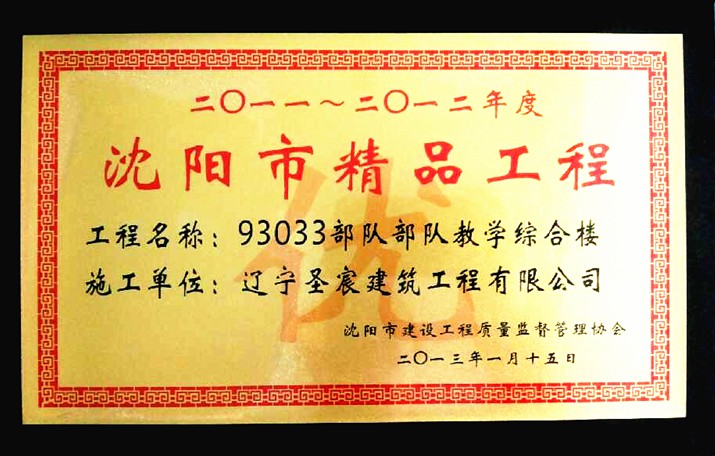 二〇一一～二〇一二年度
沈阳市精品工程
优
工程名称：93033部队部队教学综合楼
施工单位：辽宁圣宸建筑工程有限公司
沈阳市建设工程质量监督管理协会
二〇一三年一月十五日